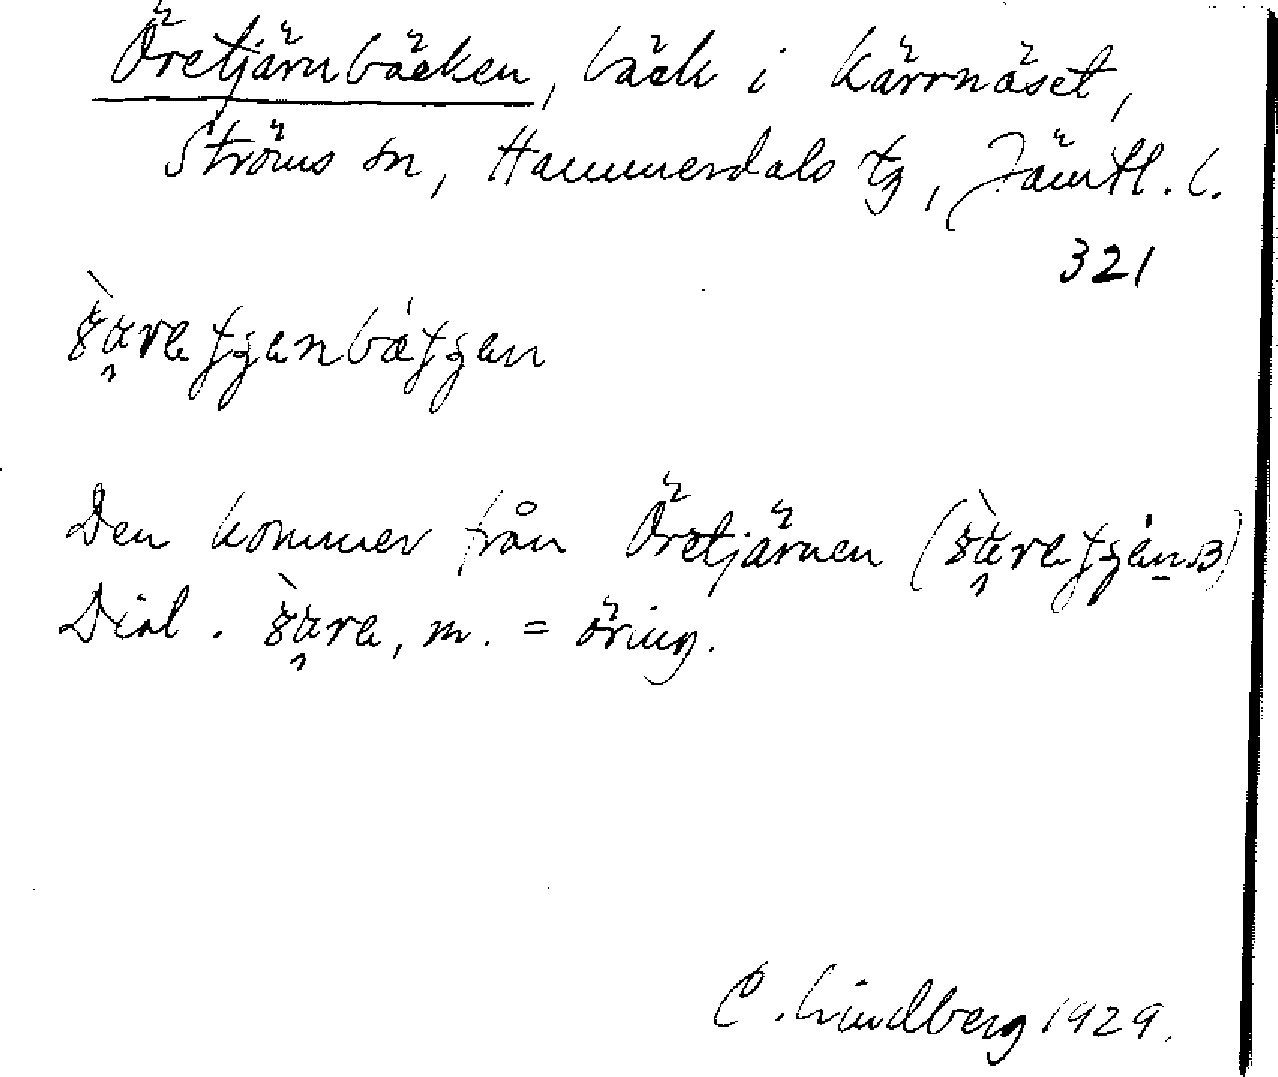 Öretjärnbäcken, bäck i Kärrnäset,
Ströms sn, Hammerdals tg, Jämtl. l.
321
Den kommer från Öretjärnen
Dial. m. = öring.
C. Lindberg 1929.